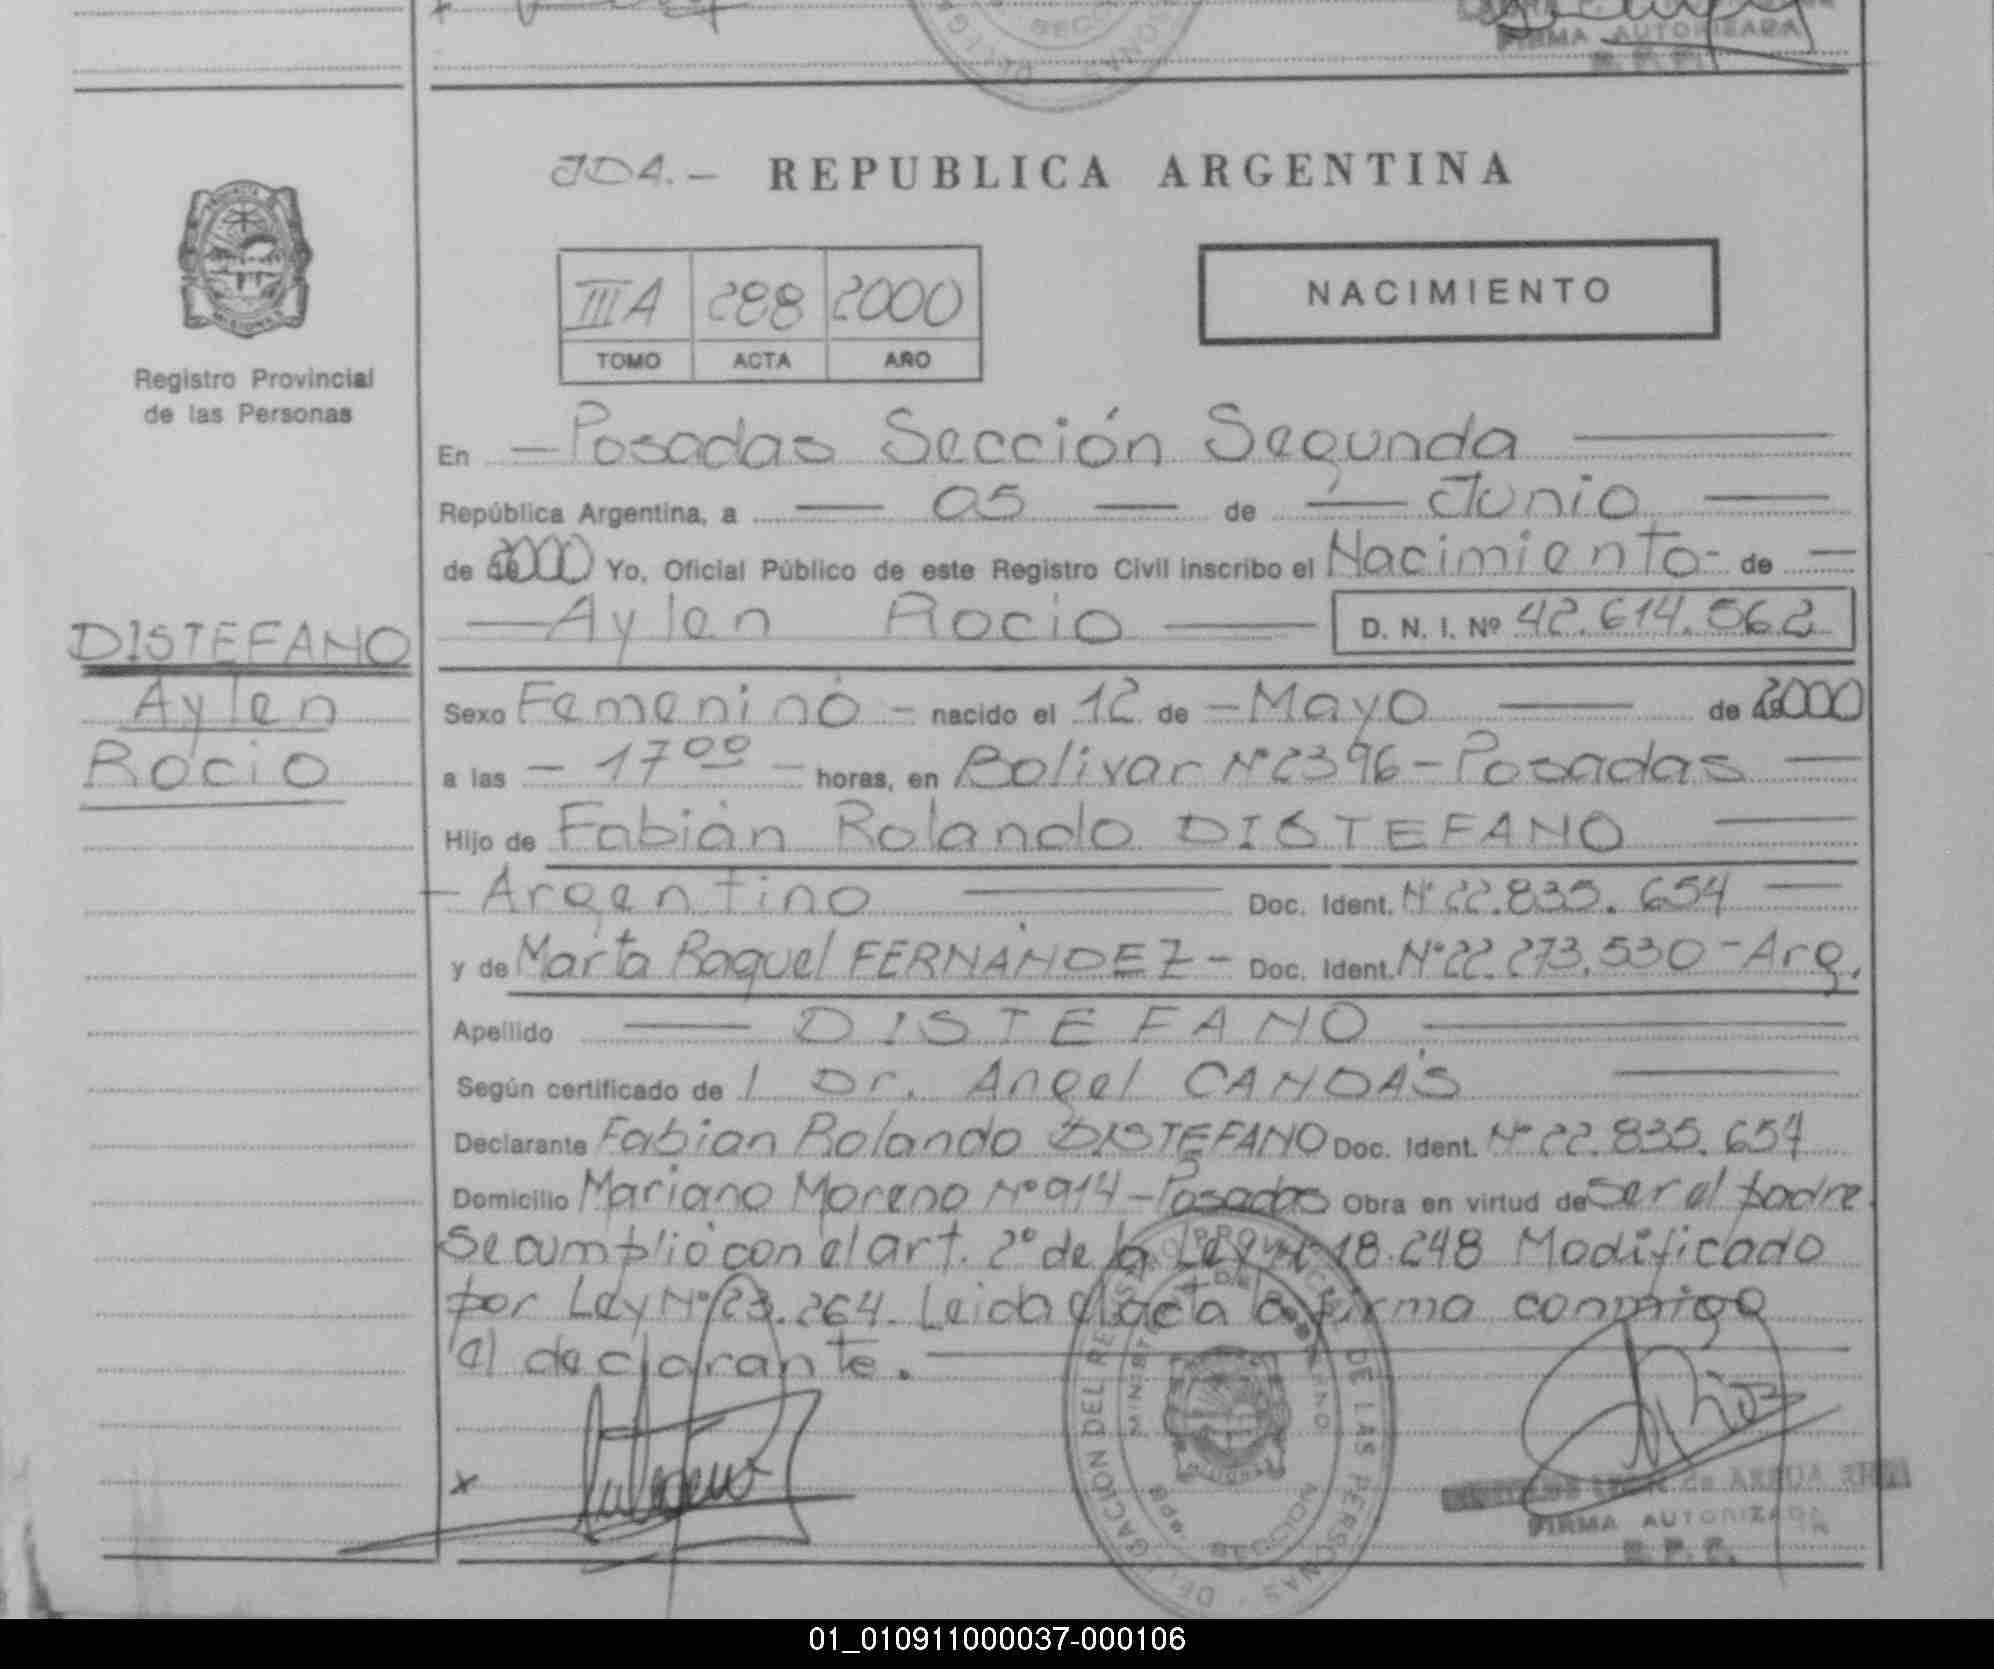 FIRMA AUTORIZADA
JDA.- REPUBLICA ARGENTINA
NACIMIENTO
IIIA 288 2000
TOMO ACTA AÑO
Registro Provincial
de las Personas
En - Posadas Sección Segunda
República Argentina, a 05 de Junio
de 2000 Yo, Oficial Público de este Registro Civil inscribo el Nacimiento - de
Aylen Rocio D. N. I. Nº 42.614.062
DISTEFANO
Aylen
Rocio
Sexo Femenino - nacido el 12 de - Mayo de 2000
a las - 17 00 - horas, en Bolivar Nº 2396 - Posadas
Hijo de Fabián Rolando DISTEFANO
- Argentino Doc. Ident. Nº 22.835.654
y de Marta Raquel FERNÁNDEZ - Doc. Ident. Nº 22.273.530 - Arg.
Apellido DISTEFANO
Según certificado de / Dr. Angel CANDÁS
Declarante Fabian Rolando DISTEFANO Doc. Ident. Nº 22.835.654
Domicilio Mariano Moreno Nº 914 - Posadas Obra en virtud de ser el padre.
Se cumplió con el art. 2º de la Ley Nº 18.248 Modificado
por Ley Nº 23.264. Leida el acta la firma conmigo
el declarante.
x
DELEGACION DEL REGISTRO PROVINCIAL DE LAS PERSONAS
FIRMA AUTORIZADA
R. P. P.
01_010911000037-000106